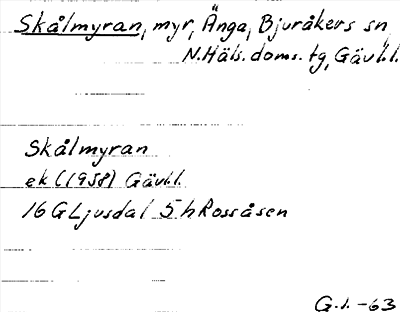 Skålmyran, myr, Änga, Bjuråkers sn,
N.Häls.doms.tg, Gävl.l.
Skålmyran
ek (1958) Gävl.l.
16 G Ljusdal 5 h Rossåsen
G.I. -63